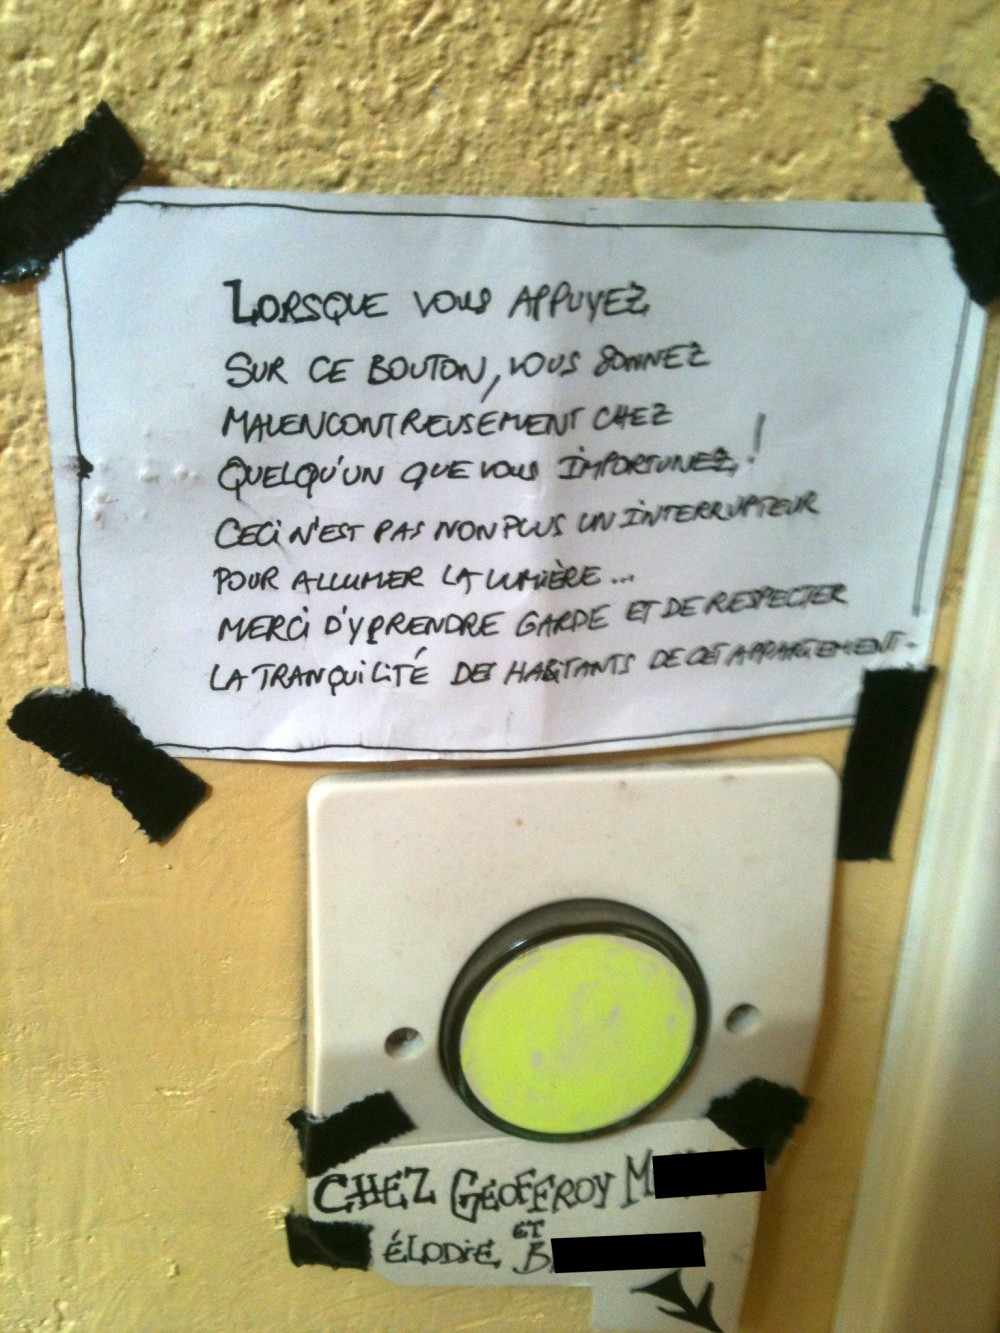 LORSQUE VOUS APPUYEZ
SUR CE BOUTON, VOUS SONNEZ
MALENCONTREUSEMENT CHEZ
QUELQU'UN QUE VOUS IMPORTUNEZ !
CECI N'EST PAS NON PLUS UN INTERRUPTEUR
POUR ALLUMER LA LUMIÈRE...
MERCI D'Y PRENDRE GARDE ET DE RESPECTER
LA TRANQUILITÉ DES HABITANTS DE CET APPARTEMENT.
CHEZ GEOFFROY M
ET
ÉLODIE B